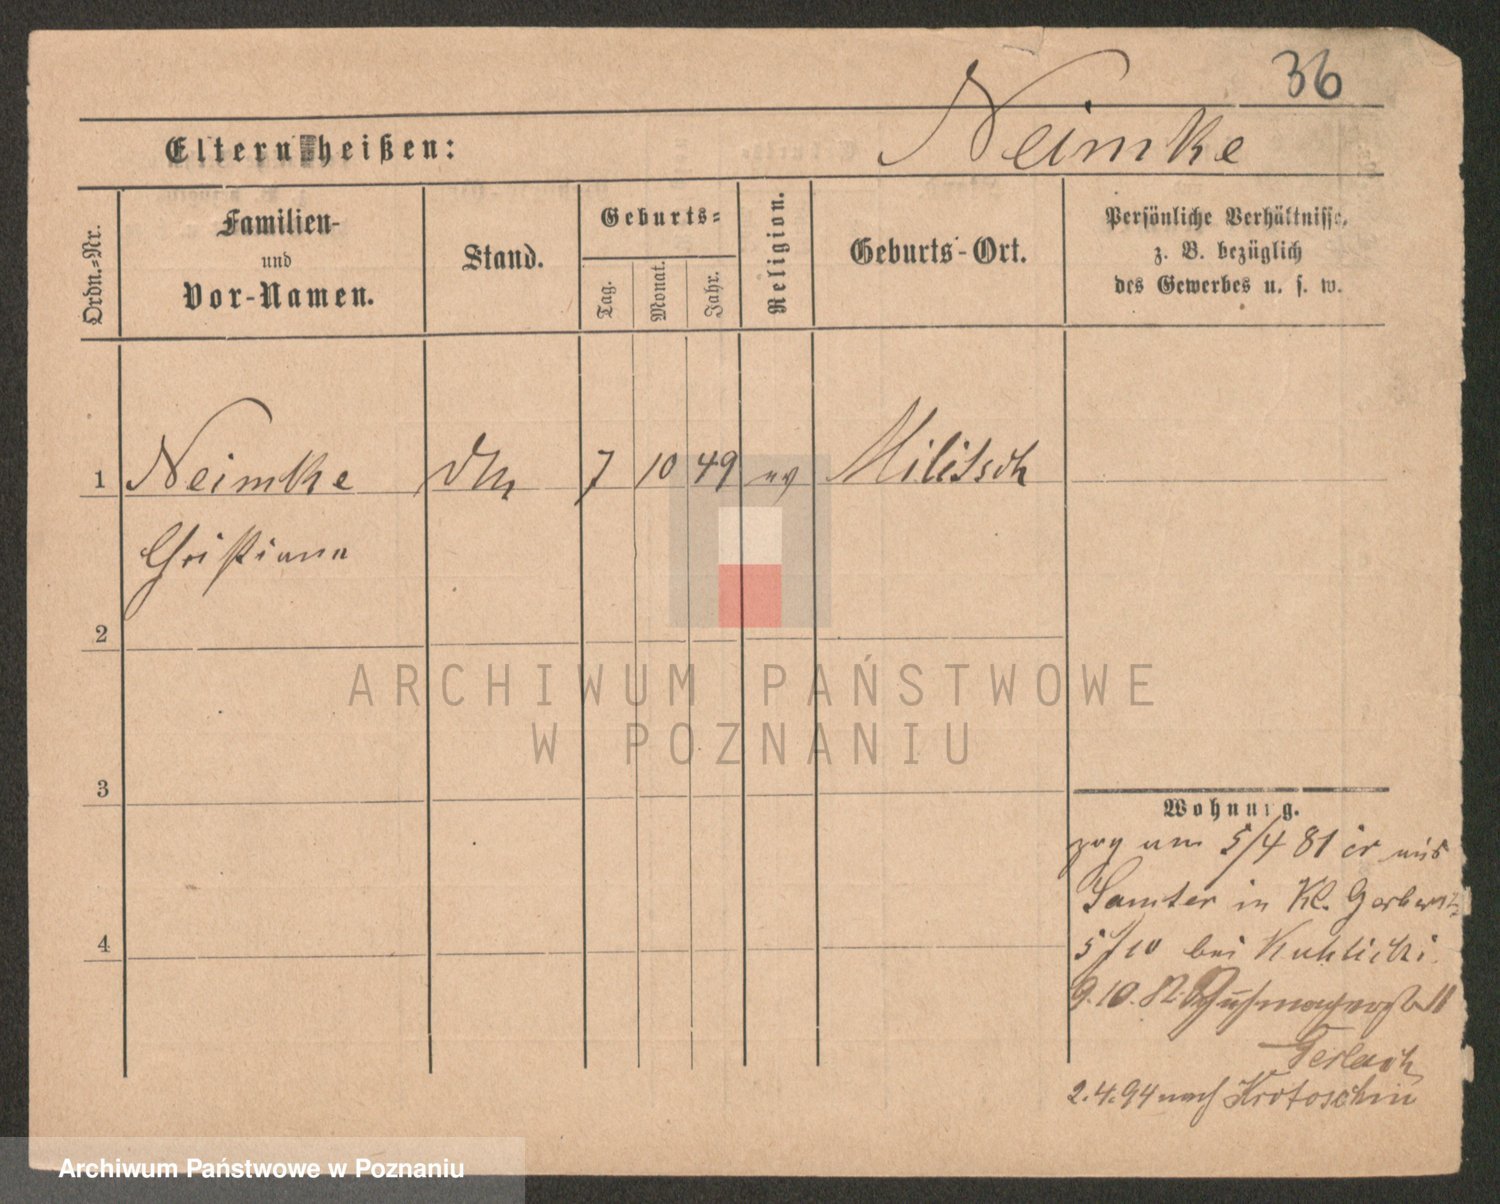 36
Neimke
Eltern heißen:
Ordn.-Nr.
Familien-
und
Vor-Namen.
Stand.
Geburts-
Tag.
Monat.
Jahr.
Religion.
Geburts-Ort.
Persönliche Verhältnisse,
z. B. bezüglich
des Gewerbes u. s. w.
1 Neimke 7 10 49 ev Militsch
Christiana
2
ARCHIWUM PAŃSTWOWE
W POZNANIU
3
Wohnung.
zog am 5/4 81 er aus
Samter in Kl. Gerberstr
4
5/10 bei Kuhlicki
9.10.82. 11
Gerlach
2.4.94 nach Krotoschin
Archiwum Państwowe w Poznaniu